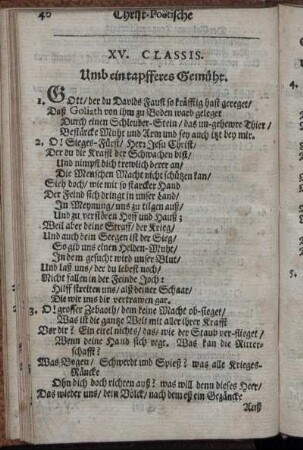 46 Christ-Poetische
XV. CLASSIS.
Umb ein tapfferes Gemüht.
1. GOtt/ der du Davids Faust so kräfftig hast gereget/
Daß Goliath von ihm zu Boden ward geleget
Durch einen Schleuder-Stein/ das un-gehewre Thier/
Bestärcke Muht und Arm und sey auch itzt bey mir.
2. O! Sieges-Fürst/ Herr Jesu Christ/
Der du die Krafft der Schwachen bist/
Und nimpst dich trewlich derer an/
Die Menschen Macht nicht schützen kan/
Sieh doch/ wie mit so starcker Hand
Der Feind sich dringt in unser Land/
In Meynung/ uns zu tilgen auß/
Und zu verstören Hoff und Hauß;
Weil aber deine Straff/ der Krieg/
Und auch dein Seegen ist der Sieg/
So gib uns einen Helden-Muht/
In dem gesucht wird unser Blut/
Und laß uns/ der du lebest noch/
Nicht fallen in der Feinde Joch:
Hilff streiten uns/ alß deiner Schaar/
Die wir uns dir vertrawen gar.
3. O! grosser Zebaoth/ dem keine Macht ob-sieget/
Was ist die gantze Welt mit aller ihrer Krafft
Vor dir? Ein eitel nichts/ das/ wie der Staub ver-flieget/
Wenn deine Hand sich regt. Was kan die Ritter-
schafft?
Was Bogen/ Schwerdt und Spieß? was alle Krieges-
Räncke
Ohn dich doch richten auß? was will denn dieses Heer/
Das wieder uns/ dein Volck/ nach dem eß ein Gezäncke
Auß